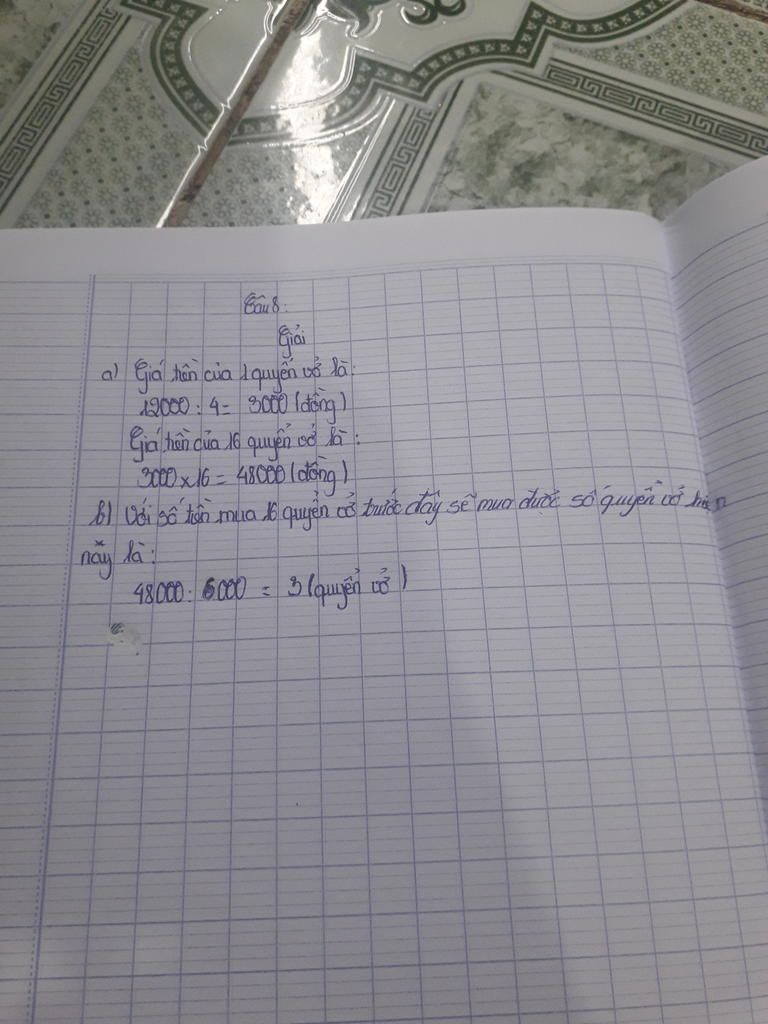 Câu 8:
Giải
a) Giá tiền của 1 quyển vở là:
12000 : 4 = 3000 (đồng)
Giá tiền của 16 quyển vở là:
3000 x 16 = 48000 (đồng)
b) Với số tiền mua 16 quyển vở trước đây sẽ mua được số quyển vở hiện
nãy là:
48000 : 6000 = 3 (quyển vở)